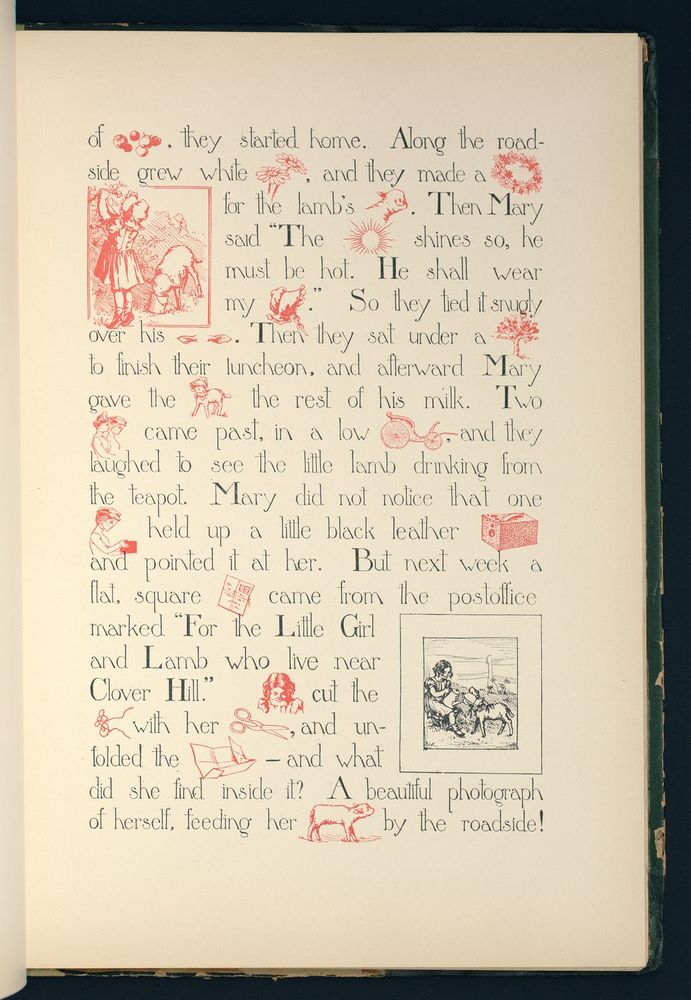 of , they started home. Along the road-
side grew white , and they made a
for the lamb's . Then Mary
said "The shines so, he
must be hot. He shall wear
my ." So they tied it snugly
over his . Then they sat under a
to finish their luncheon, and afterward Mary
gave the the rest of his milk. Two
came past, in a low , and they
laughed to see the little lamb drinking from
the teapot. Mary did not notice that one
held up a little black leather
and pointed it at her. But next week a
flat, square came from the postoffice
marked "For the Little Girl
and Lamb who live near
Clover Hill." cut the
with her , and un-
folded the – and what
did she find inside it? A beautiful photograph
of herself, feeding her by the roadside!